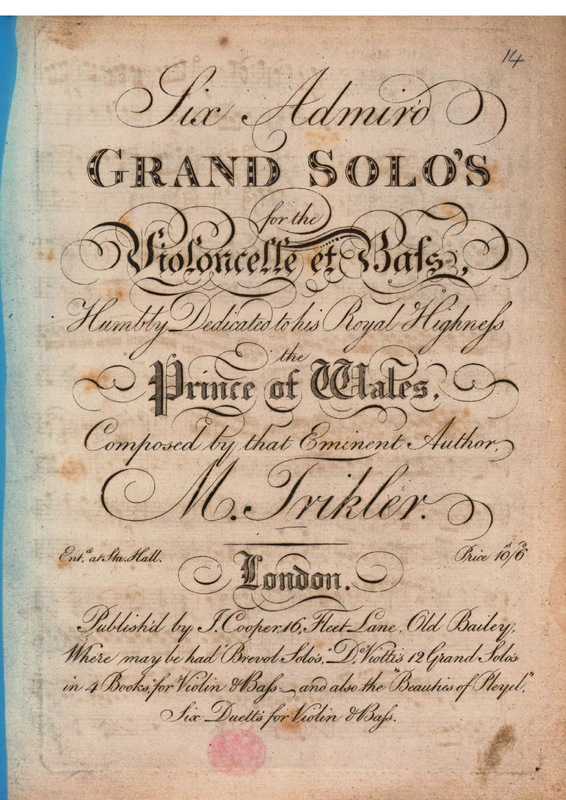 14
Six Admir'd
GRAND SOLO'S
for the
Violoncelle et Baſs,
Humbly Dedicated to his Royal Highneſs
the
Prince of Wales,
Composed by that Eminent Author,
M. Trikler.
Ent.d at Sta. Hall. Price 10s/6d
London.
Publish'd by J. Cooper, 16, Fleet Lane, Old Bailey,
Where may be had Brevol Solo's, Do. Viotti's 12 Grand Solo's
in 4 Books, for Violin & Baſs and also the "Beauties of Pleyel",
Six Duett's for Violin & Baſs.